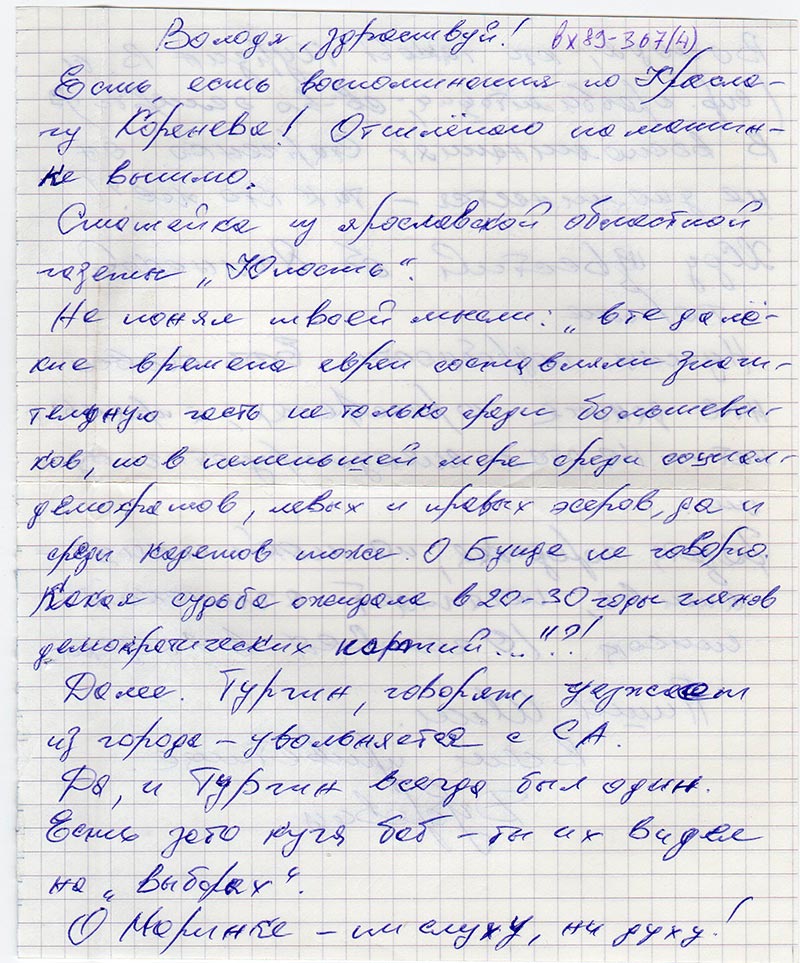 Володя, здравствуй! вх89-307(4)
Есть, есть воспоминания по Красла-
гу Коренева! Отшлёпаю на машин-
ке вышлю.
Статейка из ярославской областной
газеты „Юность“.
Не понял твоей мысли: „в те далё-
кие времена евреи составляли значи-
тельную часть не только среди большеви-
ков, но в неменьшей мере среди социал-
демократов, левых и правых эсеров, да и
среди кадетов тоже. О Бунде не говорю.
Какая судьба ожидала в 20-30 годы членов
демократических партий...“?!
Далее. Тургин, говорят, уезжает
из города – увольняется с СА.
Да, и Тургин всегда был один.
Есть зато куча баб – ты их видел
на „выборах“.
О Маринке – ни слуху, ни духу!